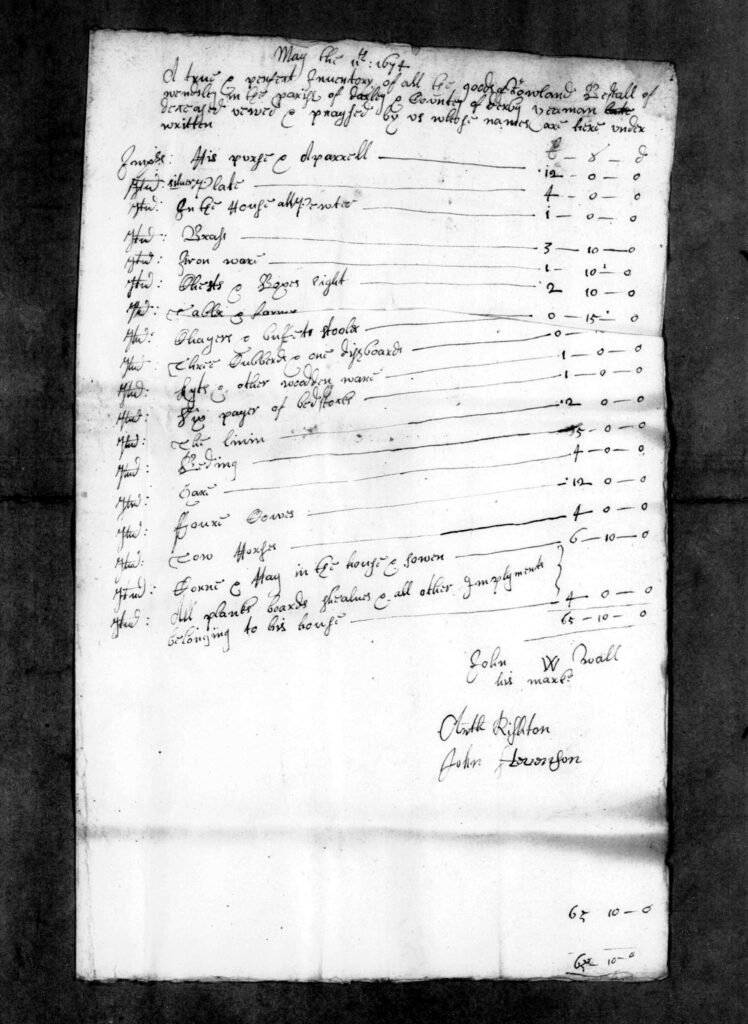 May the 11th: 1674
A true & perfect Inventory of all the goods of Rowland Bestall of
wensley in the parish of darley & County of derby yeaman
deceased vewed & praysed by us whose names are here under
written
Imp: His purse & Aparrell — 12 — 0 — 0
Itm: silver Plate — 4 — 0 — 0
Itm: In the House all Pewter — 1 — 0 — 0
Itm: Brass — 3 — 10 — 0
Itm: Iron ware — 1 — 10 — 0
Itm: Chests & Boxes eight — 2 — 10 — 0
Itm: Table & — 0 — 15 — 0
Itm: Chayers & buffets stooles — 0
Itm: Three Cubberds & one dishboards — 1 — 0 — 0
Itm: & other wooden ware — 1 — 0 — 0
Itm: Six payer of bedstocks — 12 — 0 — 0
Itm: The linin — 0 — 0
Itm: Beding — 4 — 0 — 0
Itm:
Itm: Foure Cowes — 12 — 0 — 0
Itm: Tow Horses — 4 — 0 — 0
Itm: Corne & Hay in the house & sowen — 6 — 10 — 0
Itm: All planks boards shealves & all other Implyments
belonging to his house — 4 — 0 — 0
65 — 10 — 0
John W Wall
his marke
Anth Rishton
John Stevenson
65 10 — 0
65 10 — 0